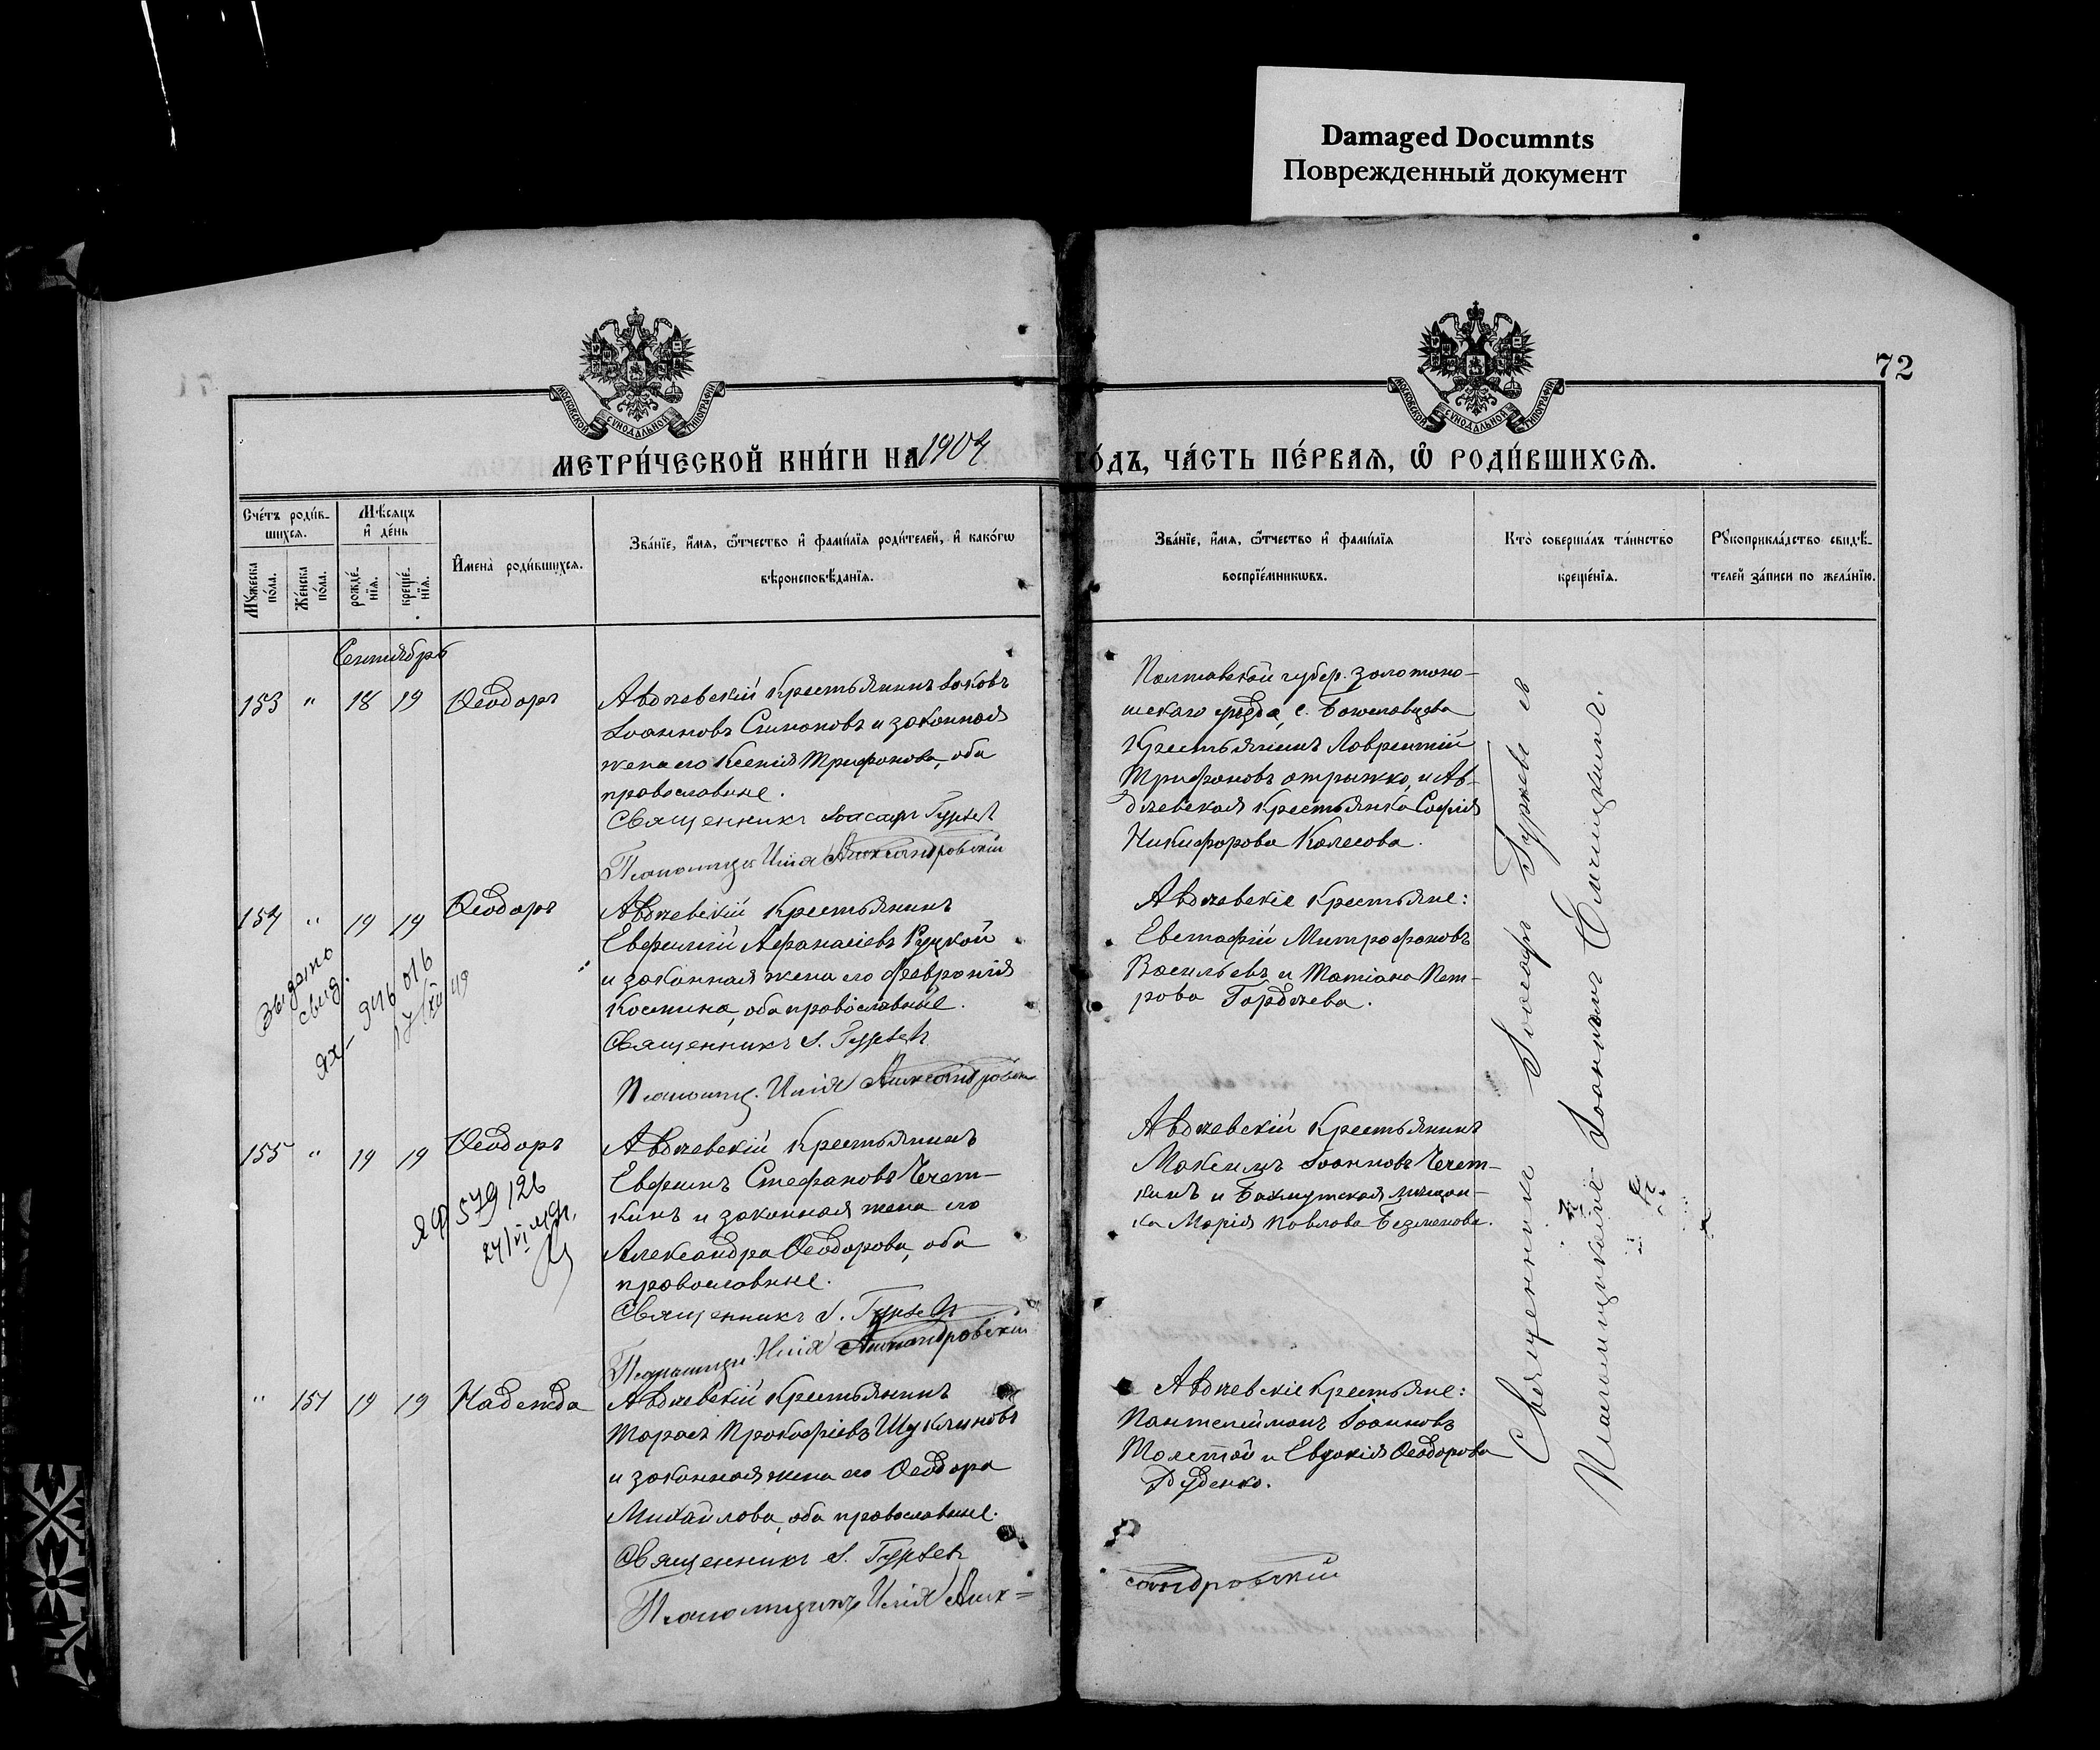 Damaged Documnts
Поврежденный документ
72
МОСКОВСКОЙ СѴНОДАЛЬНОЙ ТИПОГРАФІИ
МОСКОВСКОЙ СѴНОДАЛЬНОЙ ТИПОГРАФІИ
МЕТРИ́ЧЕСКОЙ КНИ́ГИ НА 1904 ГО́ДЪ, ЧА́СТЬ ПЕ́РВАѦ, Ѡ҆ РОДИ́ВШИХСѦ.
Сче́тъ роди́в-
шихсѧ.
Мꙋжеска по́ла.
Же́нска по́ла.
Мѣ́сѧцъ
и҆ де́нь
рожде́-
нїѧ.
креще́-
нїѧ.
И҆мена̀ роди́вшихсѧ.
Зва́нїе, и҆́мѧ, ѻ҆́тчество и҆ фами́лїѧ роди́телей, и҆ како́гѡ
вѣроисповѣ́данїѧ.
Зва́нїе, и҆́мѧ, ѻ҆́тчество и҆ фами́лїѧ
воспрїе́мникѡвъ.
Кто̀ соверша́лъ та́инство
креще́нїѧ.
Рꙋкоприкла́дство свидѣ́-
телей за́писи по жела́нїю.
Сентябрь
153 " 18 19 Ѳеодоръ
Авдѣевскій крестьянинъ Іаковъ
Іоанновъ Симоновъ и законная
жена его Ксенія Трифонова, оба
православные.
Священникъ Іоасафъ Гурьевъ
Псаломщикъ Илія Александровскій
Полтавской губер. Золотоно-
шскаго уѣзда, с.
Крестьянинъ Лаврентій
Трифоновъ и Ав-
дѣевская крестьянка Софія
Никифорова Колесова.
154 " 19 19 Ѳеодоръ
Авдѣевскій крестьянинъ
Евфимій Аѳанасіевъ Руцкой
и законная жена его Февронія
Космина, оба православные.
Священникъ І. Гурьевъ
Псаломщ. Илія Александровскій
Авдѣевскіе крестьяне:
Евстафій Митрофановъ
Васильевъ и Татіана Пет-
рова Гордѣева.
выдано
свид.
ЯХ- 316016
17/XII 49
155 " 19 19 Ѳеодоръ
Авдѣевскій крестьянинъ
Евфимъ Стефановъ Чечет-
кинъ и законная жена его
Александра Ѳеодорова, оба
православные.
Священникъ І. Гурьевъ
Псаломщикъ Илія Александровскій
Авдѣевскій крестьянинъ
Максимъ Іоанновъ Чечет-
кинъ и Бахмутская мѣщан-
ка Марія Павлова Безменова.
ЯФ 579126
"  151 19 19 Надежда
Авдѣевскій крестьянинъ
Тарасъ Прокофіевъ Шуклиновъ
и законная жена его Ѳеодора
Михайлова, оба православные.
Священникъ І. Гурьевъ
Псаломщикъ Илія Алек=
сандровскій
Авдѣевскіе крестьяне:
Пантелеймонъ Іоанновъ
Толстой и Евдокія Ѳеодорова
Дуденко.
Священникъ Іоасафъ Гурьевъ съ
Псаломщикомъ Іоанномъ